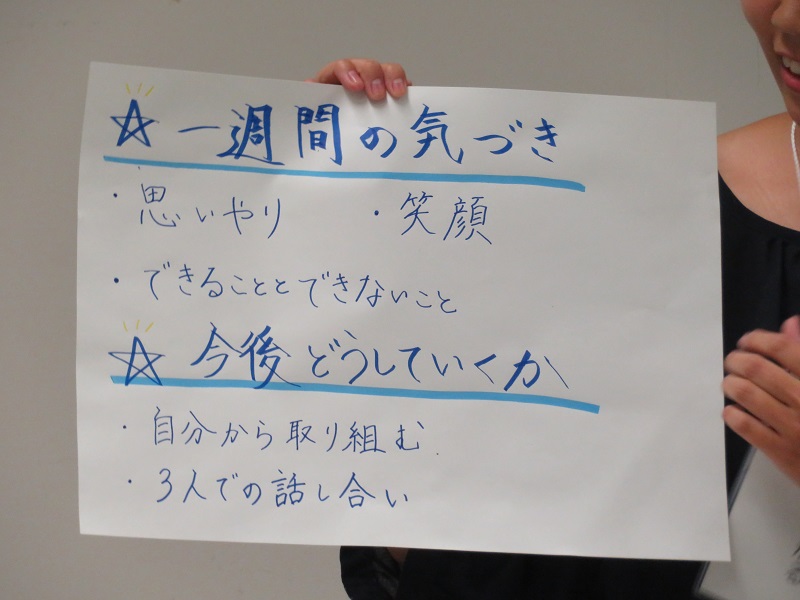 ☆ 一週間の気づき
・思いやり ・笑顔
・できることとできないこと
☆ 今後どうしていくか
・自分から取り組む
・3人での話し合い